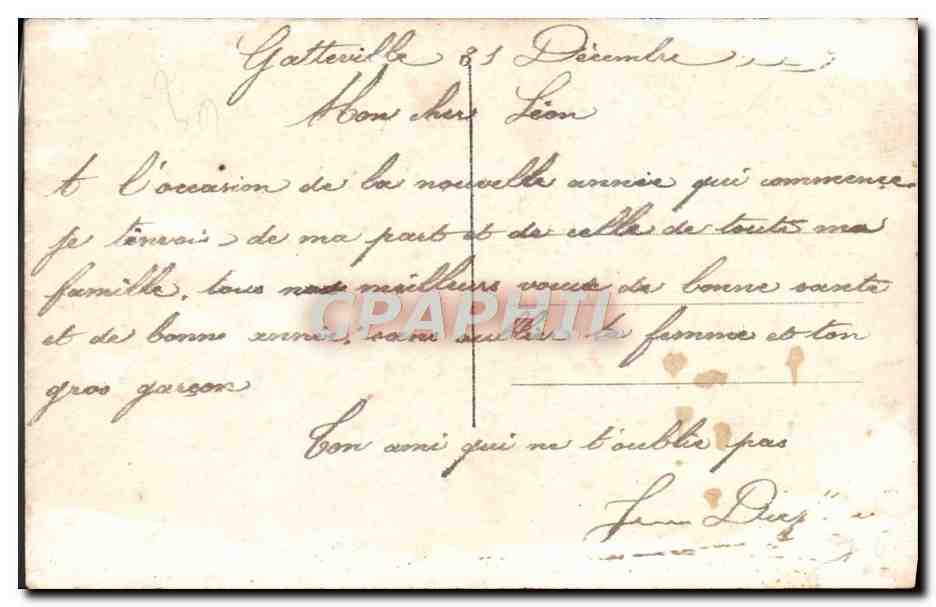 Gatteville 31 Décembre
Mon cher Léon
A l'occasion de la nouvelle année qui commence
je t'envois de ma part et de celle de toute ma
famille, tous nos meilleurs voeux de bonne santé
CPAPHIL
et de bonne année, sans oublier ta femme et ton
gros garçon
Ton ami qui ne t'oublie pas
Jean